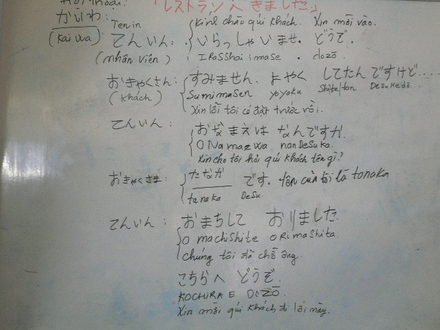 Hội thoại: 「レストランへ きました」
かいわ: Tenin { Kính chào quí khách. Xin mời vào.
(Kai wa) てんいん: { いらっしゃいませ. どうぞ.
(nhân viên) { IRaSShai ma Se. Dozo.
おきゃくさん: { すみません. よやく したんですけど...
(khách) { Sumimasen yoyaku Shitetan Desukedo
Xin lỗi tôi có đặt trước rồi.
てんいん: { おなまえは なんですか.
O Namae wa nan Desu ka.
Xin cho tôi hỏi quí khách tên gì?
おきゃくさま { たなか です. tên của tôi là tanaka
tanaka Desu
てんいん: { おまちして おりました.
O machishite ORimashita
chúng tôi đã chờ ông.
こちらへ どうぞ.
KOCHIRA E DOZO
Xin mời quí khách đi lối này.